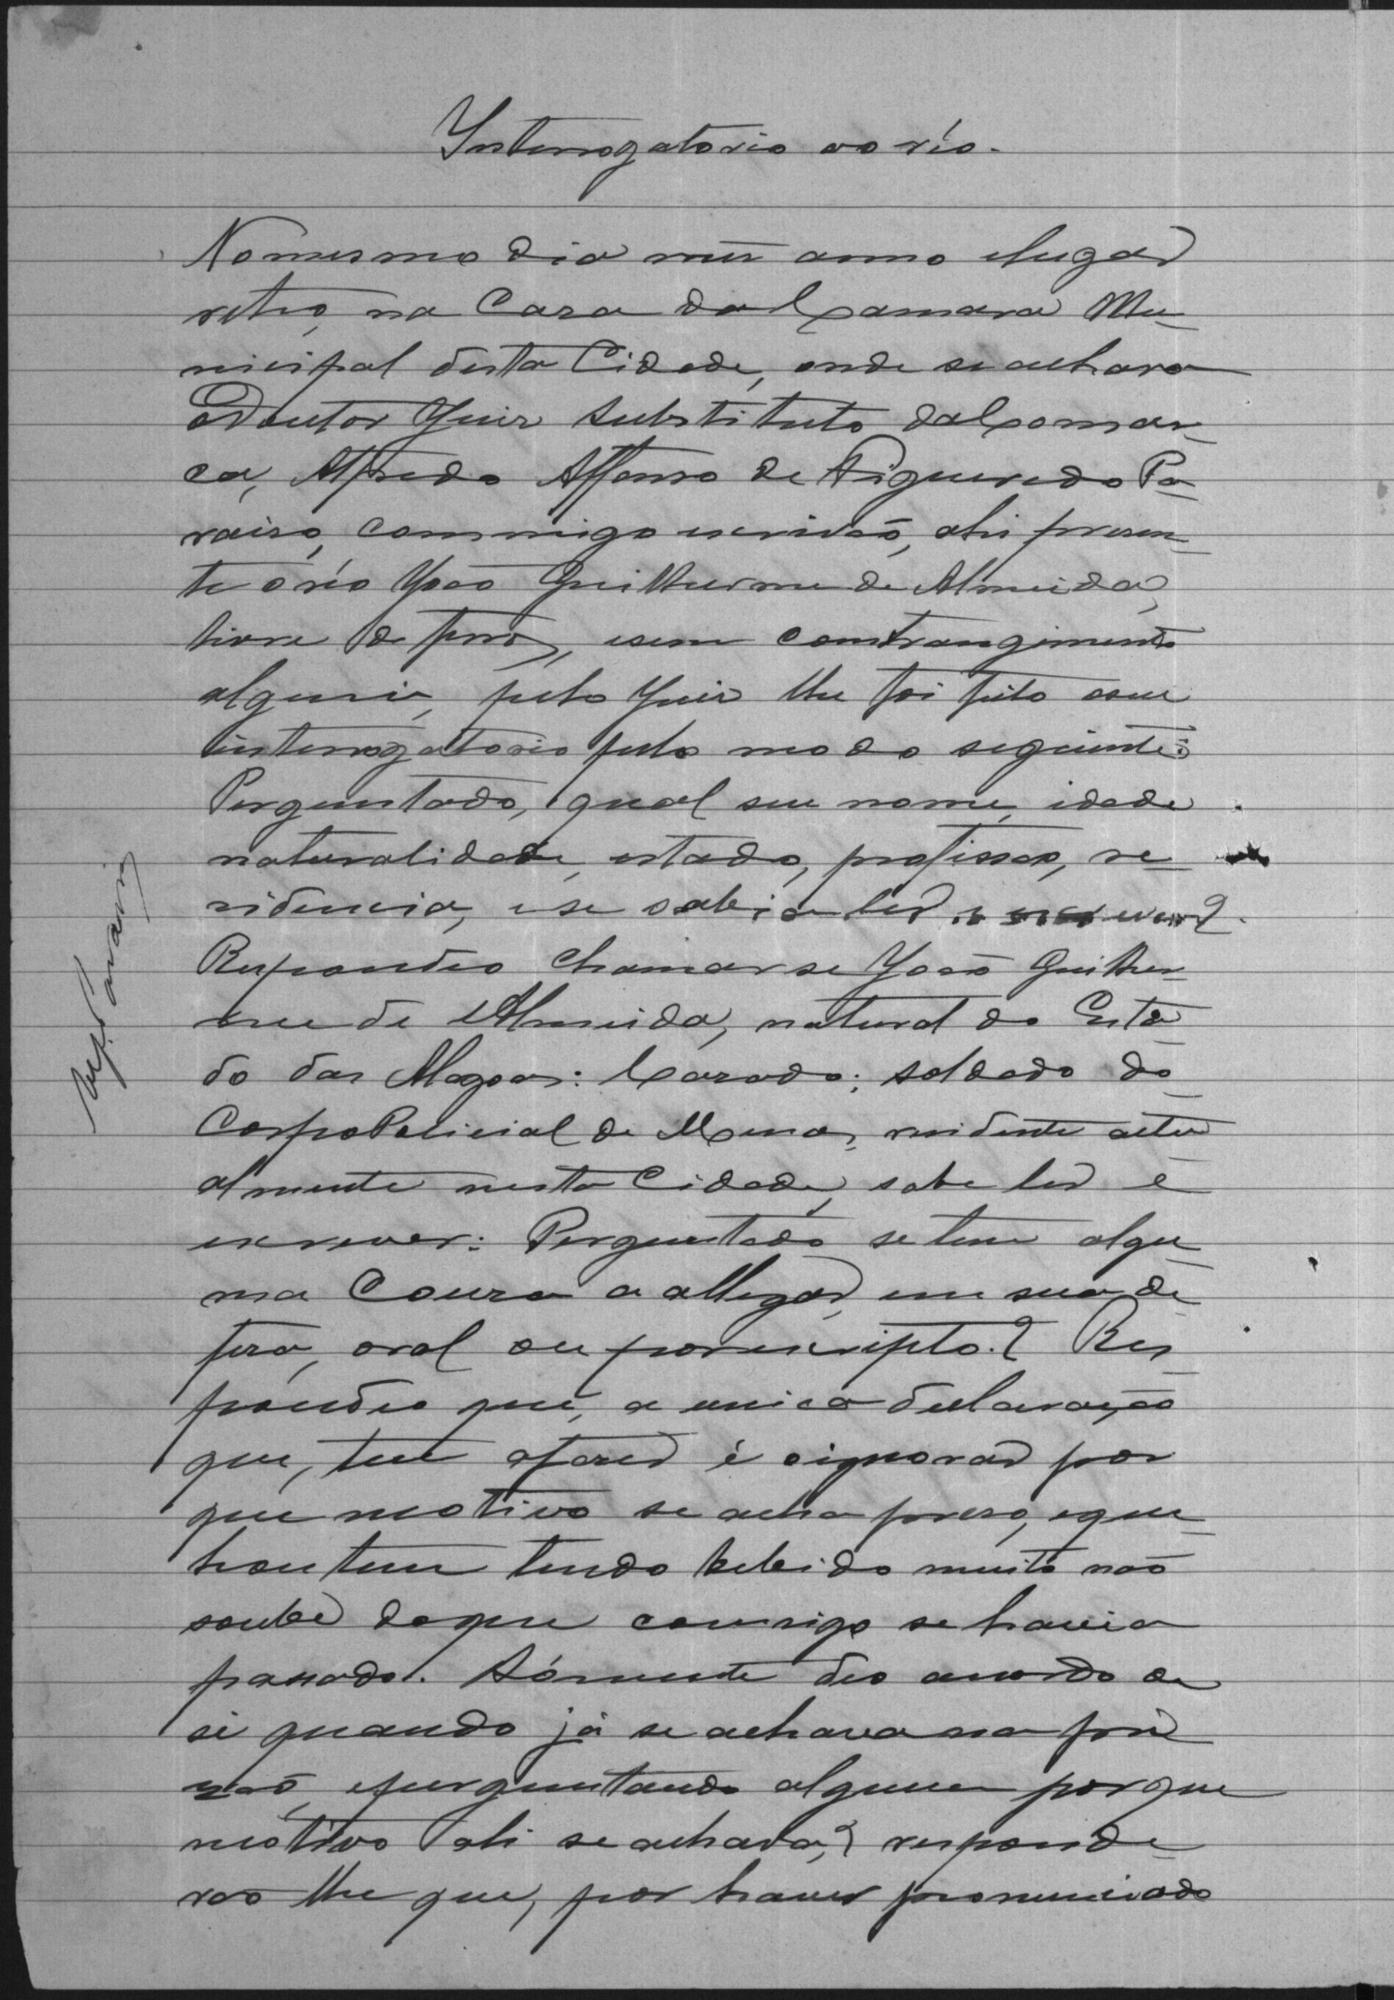 Interrogatorio ao réo.
No mesmo dia mez anno e lugar
retro, na Casa da Camara Mu-
nicipal desta Cidade, onde se achava
o Doutor Juiz Substituto da Comar-
ca, Alfredo Affonso de Figueredo Pa-
raiso, commigo escrivão, ahi presen-
te o réo João Guilherme de Almeida,
livre de ferros, e sem constrangimento
algum, pelo Juiz lhe foi feito o seu
interrogatorio pelo modo seguinte:
Perguntado, qual seu nome, idade
naturalidade, estado, profissão, re-
sidencia, e se sabia ler e escrever?
Respondeo chamar-se João Guilher-
me de Almeida, natural do Esta-
do das Alagoas: Casado; soldado do
Corpo Policial de Minas, residente actu-
almente nesta Cidade, sabe ler e
escrever: Perguntado se tem algu-
ma Cousa a allegar em sua de-
fesa, oral ou por escripto? Res-
pondeo que, a unica declaração
que, tem a fazer é ignorar por
que motivo se acha preso, e que
hontem tendo bebido muito não
soube do que comsigo se havia
passado. Sómente deo acordo de
si quando já se achava na pri-
zão, e perguntando alguem por que
motivo ahi se achava,? responde-
rão lhe que, por haver pronunciado